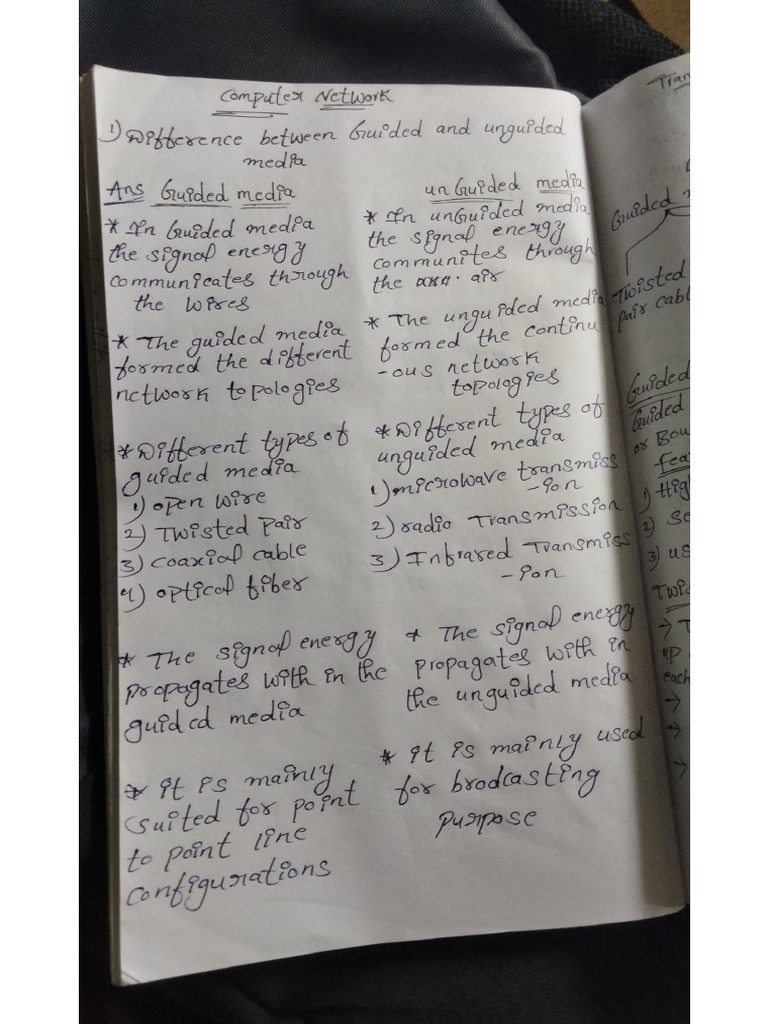 Computer Network
1) Difference between Guided and unguided
media
Ans Guided media
* In Guided media
the signal energy
communicates through
the wires
* The guided media
formed the different
network topologies
* Different types of
guided media
1) open wire
2) Twisted Pair
3) coaxial cable
4) optical fiber
* The signal energy
propagates with in the
guided media
* it is mainly
suited for point
to point line
configurations
unGuided media
* In unGuided media
the signal energy
communites through
the air
* The unguided media
formed the continu
-ous network
topologies
* Different types of
unguided media
1) microwave transmiss
-ion
2) radio Transmission
3) Infrared Transmiss
-ion
* The signal energy
propagates with in
the unguided media
* it is mainly used
for brodcasting
purpose
Tran
Guided
Twisted
pair cabl
Guided
Guided
or Bou
fea
1) Hig
2) Se
3) us
Twis
→ T
up
each
→
→
→